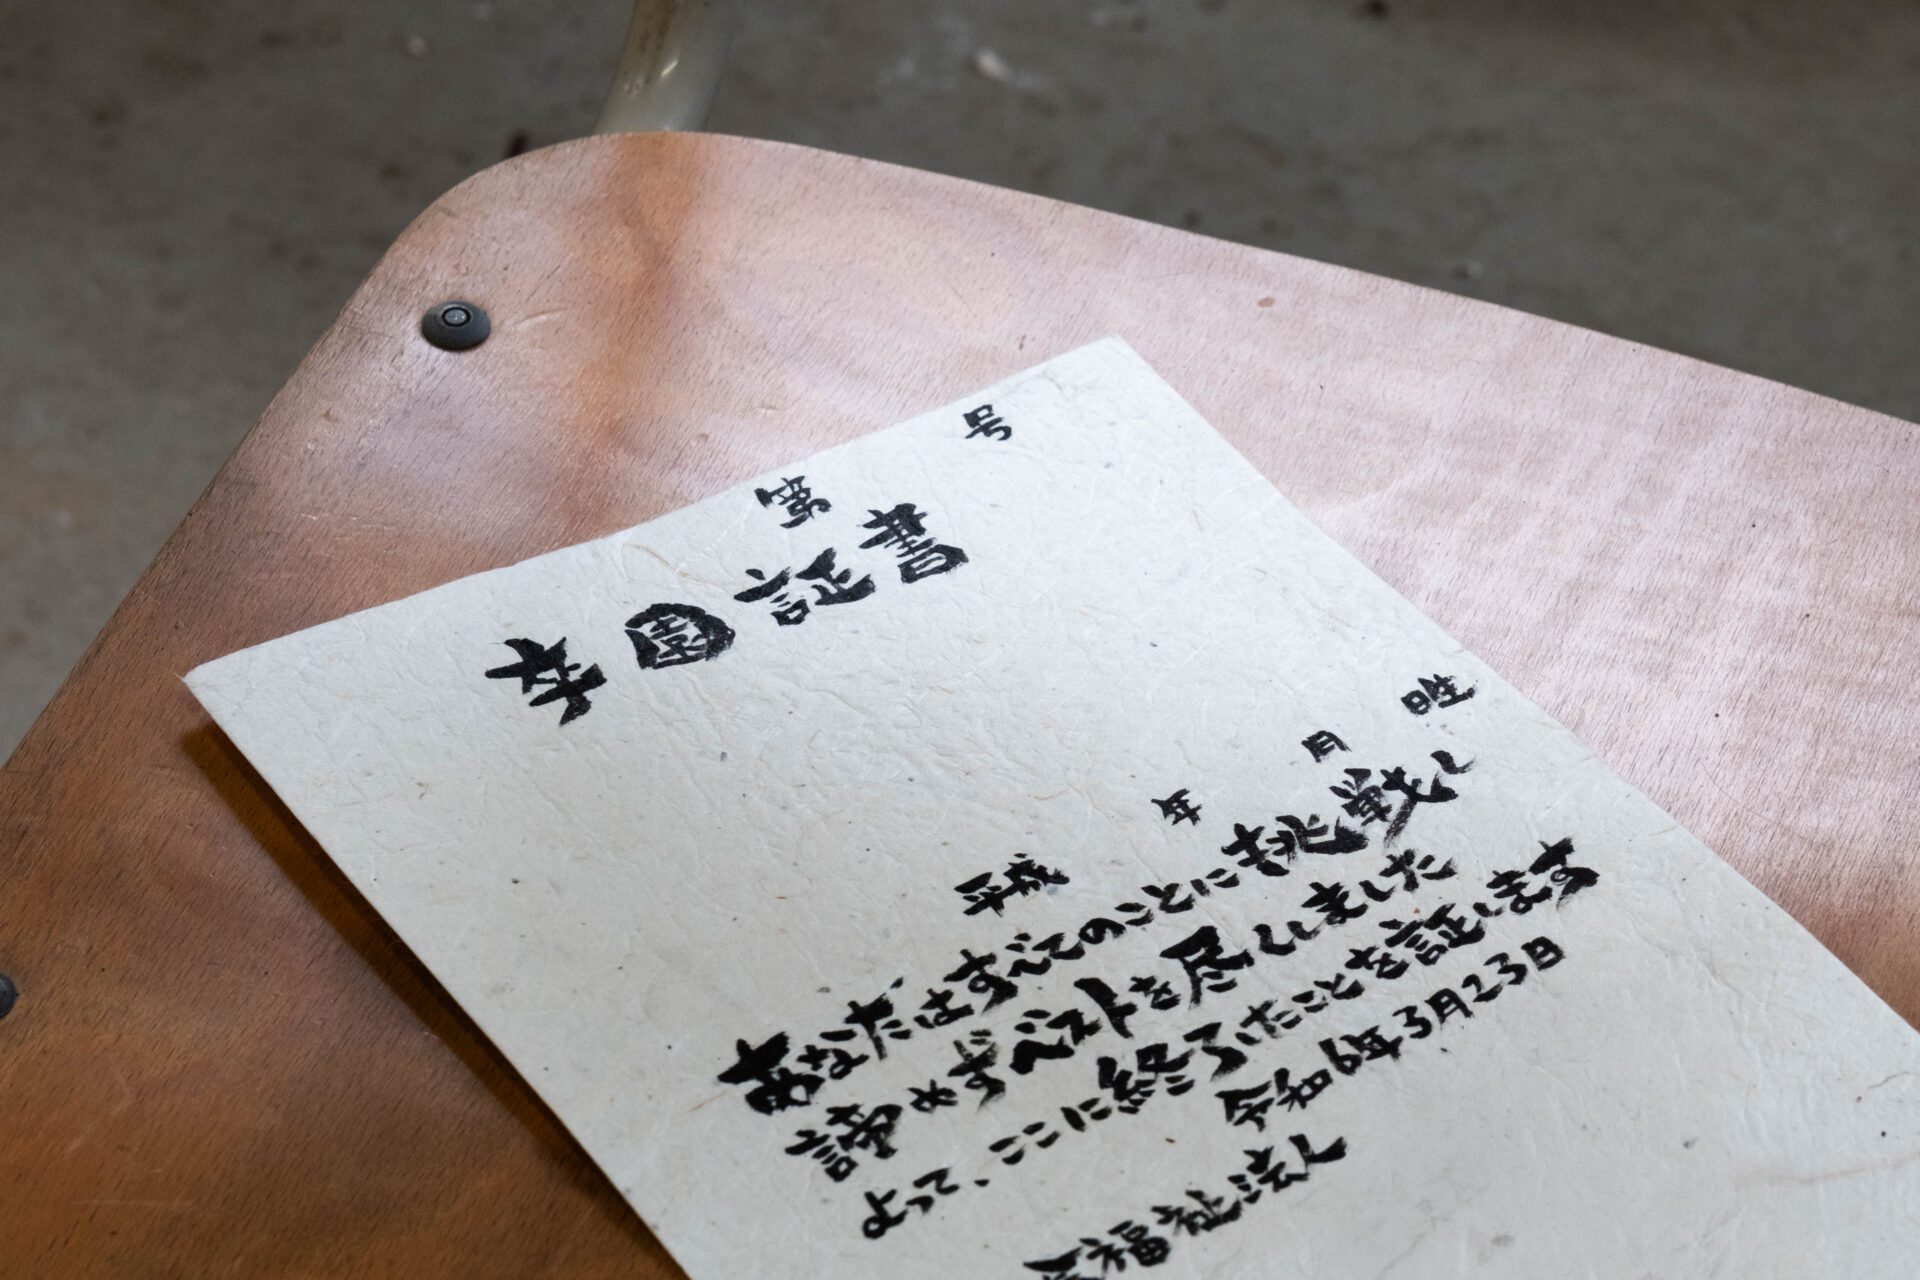 第 号
卒園証書
様 年 月 日生
あなたはすべてのことに挑戦し
諦めずベストを尽くしました
よって、ここに終了したことを証します
令和6年3月23日
福祉法人